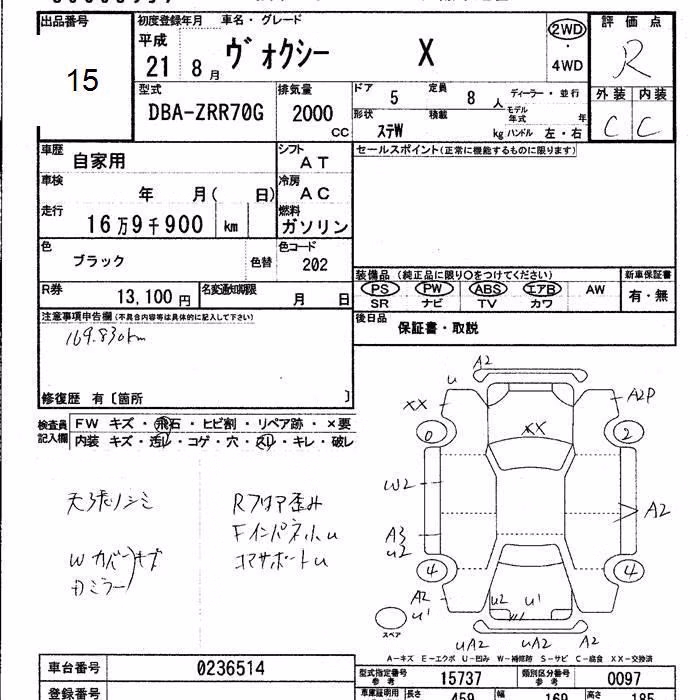 出品番号
15
初度登録年月 車名・グレード
平成 21 8月
ヴォクシー X
2WD
・
4WD
評価点
R
外装 内装
C C
型式
DBA-ZRR70G
排気量
2000 cc
ドア 5
定員 8人
ディーラー・並行
形状 ステW
積載 kg
モデル年式 年
ハンドル 左・右
車歴 自家用
シフト AT
車検 年 月( 日)
冷房 AC
走行 16万9千900 km
燃料 ガソリン
色 ブラック 色替
色コード 202
R券 13,100円
名変通知期限 月 日
セールスポイント(正常に機能するものに限ります)
装備品 (純正品に限り○をつけてください)
PS PW ABS エアB AW
SR ナビ TV カワ
新車保証書
有・無
後日品 保証書・取説
注意事項申告欄(不具合内容等は具体的に記入して下さい)
169.830km
修復歴 有〔箇所 〕
検査員記入欄
FW キズ・飛石・ヒビ割・リペア跡・×要
内装 キズ・汚レ・コゲ・穴・スレ・キレ・破レ
天張りシミ
Wカバー キズ
Dミラー
Rフロア歪み
Fインパネ小u
コアサポートu
A2
u
XX
A2P
XX
0
2
W2
A2
A3
u2
4
4
A2
u1
u2 u1
スペア
uA2 uA2 A2
A-キズ E-エクボ U-凹み W-補修跡 S-サビ C-腐食 XX-交換済
車台番号 0236514
登録番号
型式指定番号 参考 15737
類別区分番号 参考 0097
車庫証明用 長さ 459 幅 169 高さ 185